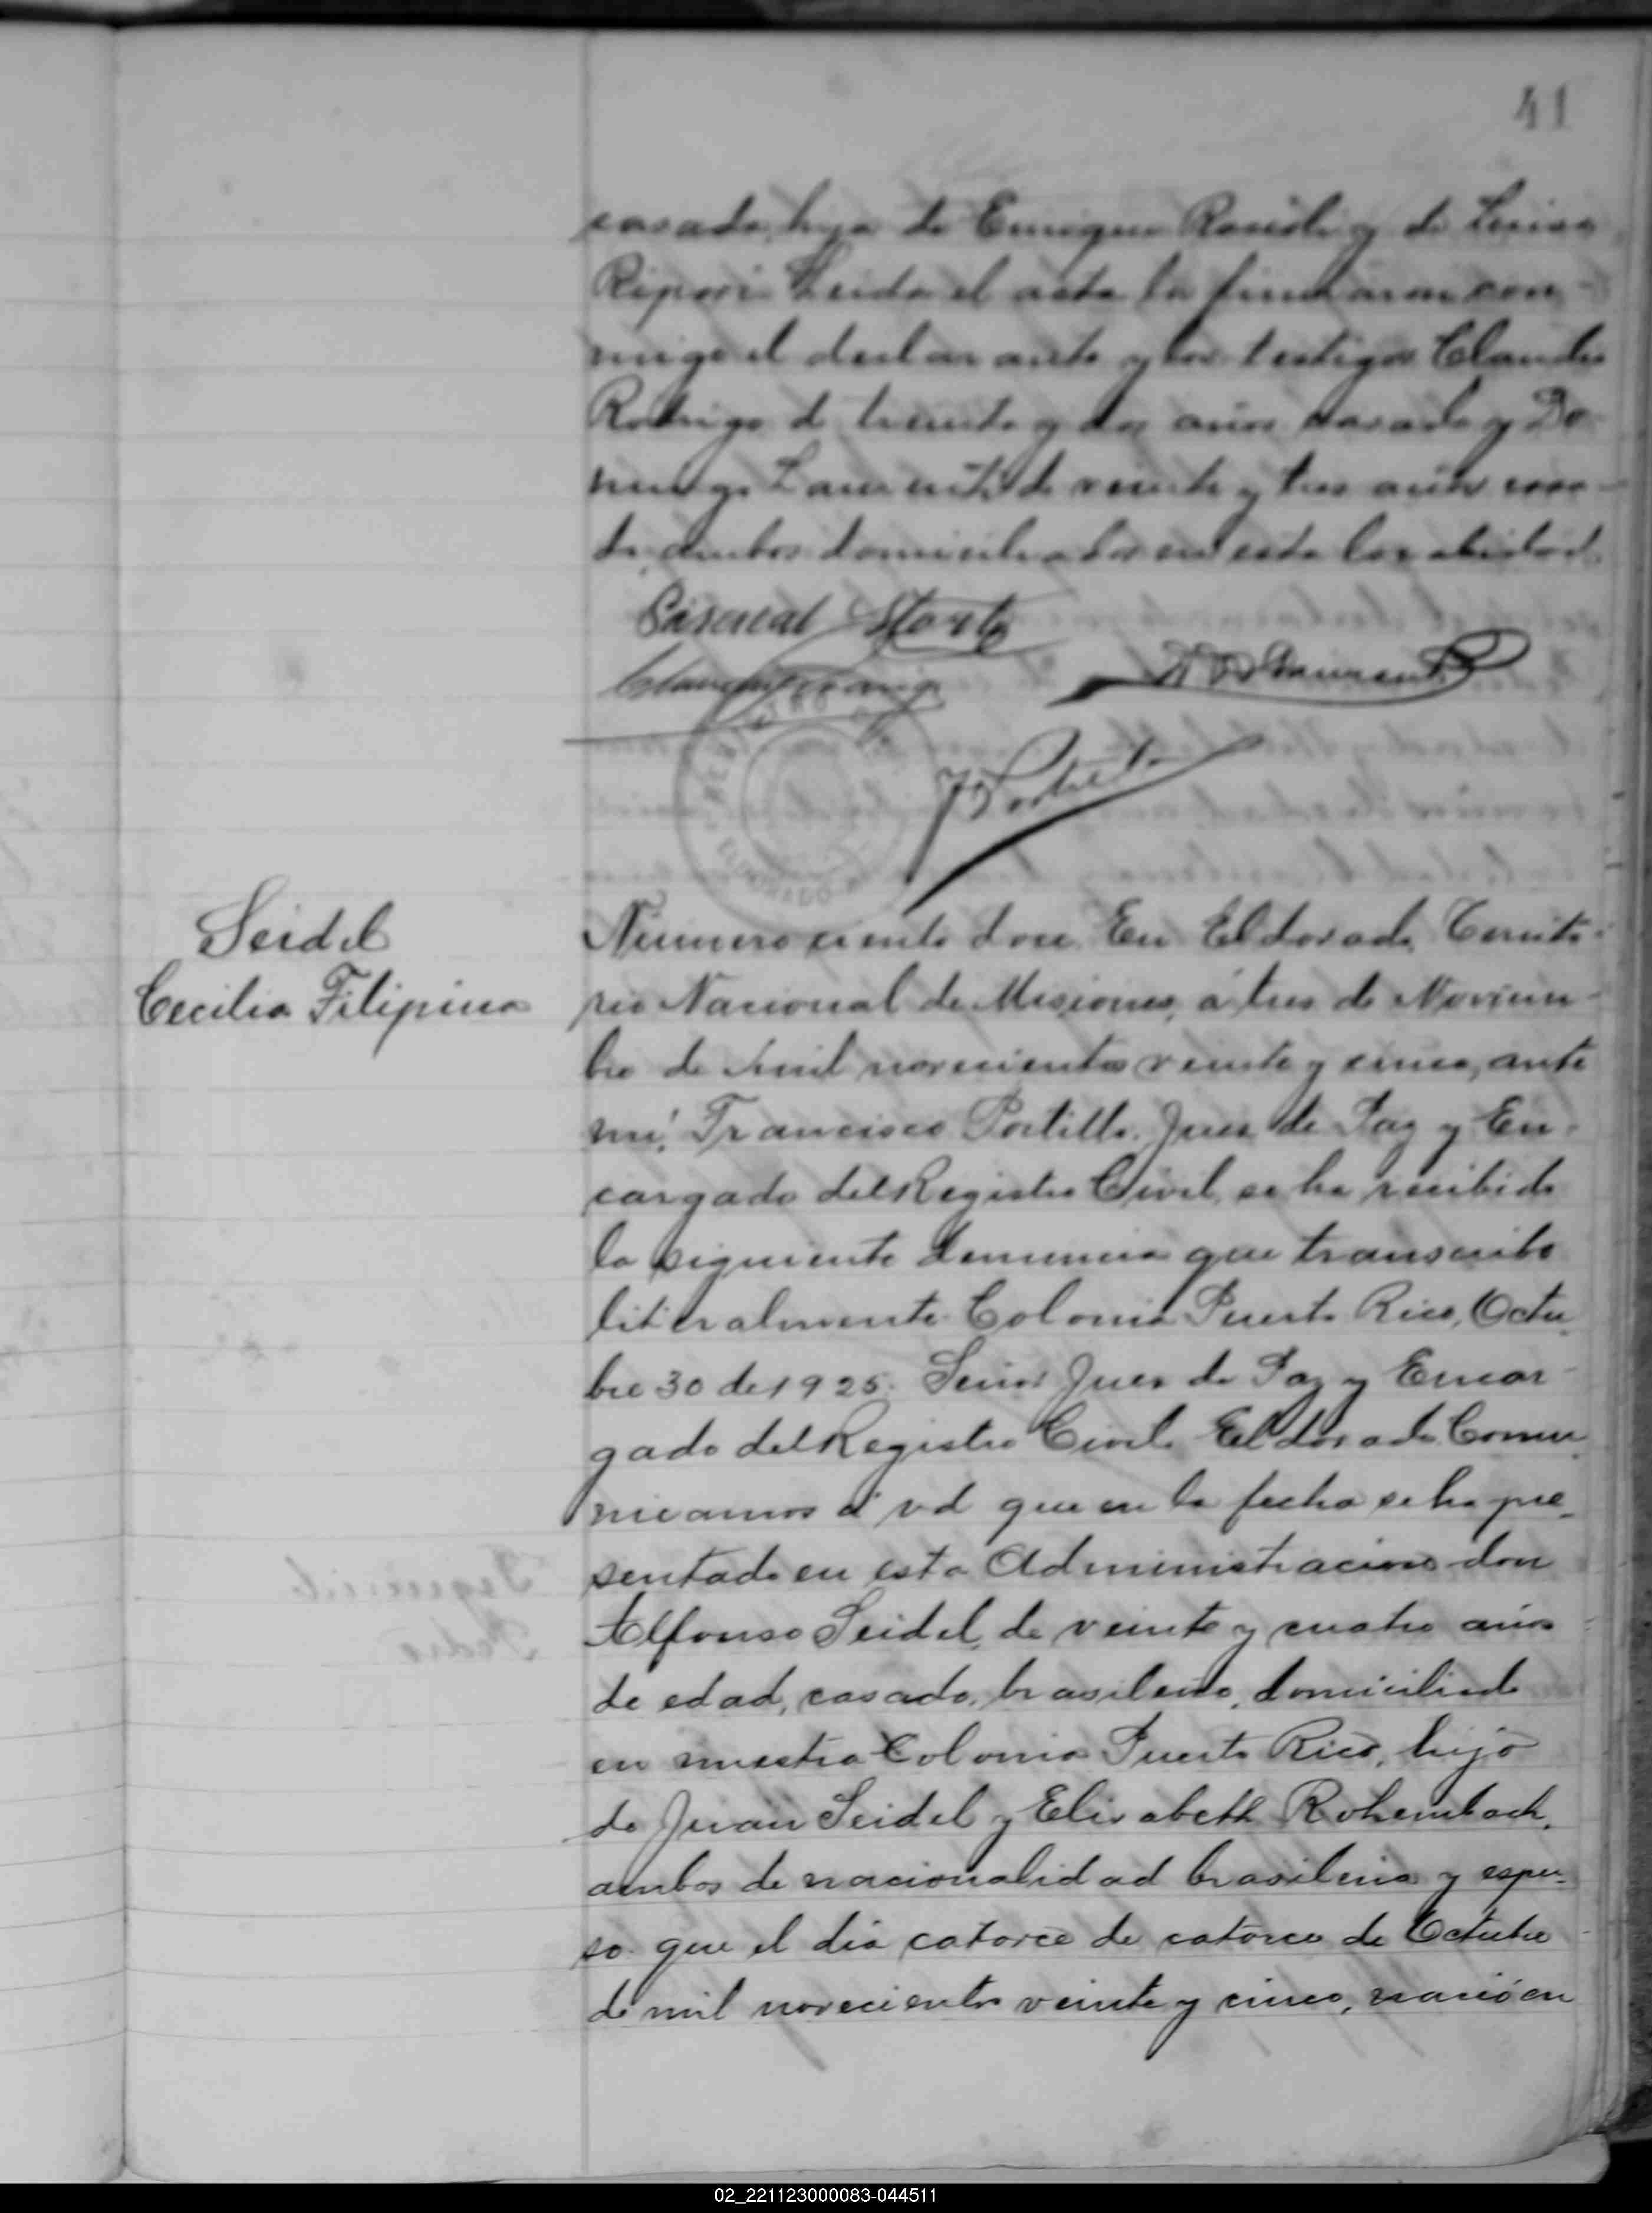 41
casada, hija de Enrique y de Luisa
Leida el acta la firmaron con-
migo el declarante y los testigos Claudio
Rodrigo de treinta y dos años casado y Do-
mingo de veinte y tres años casa-
do, ambos domiciliados en esta localidad.
Pascual Storti
F Portillo
REGISTRO
ELDORADO
Seidel
Cecilia Filipina
Número ciento doce. En Eldorado, Territo-
rio Nacional de Misiones, á tres de Noviem-
bre de mil novecientos veinte y cinco, ante
mí, Francisco Portillo, Juez de Paz y En-
cargado del Registro Civil, se ha recibido
la siguiente denuncia que transcribo
literalmente. Colonia Puerto Rico, Octu-
bre 30 de 1925. Señor Juez de Paz y Encar-
gado del Registro Civil. Eldorado. Comu-
nicamos á vd que en la fecha se ha pre-
sentado en esta Administracion don
Alfonso Seidel, de veinte y cuatro años
de edad, casado, brasileño, domiciliado
en nuestra Colonia Puerto Rico, hijo
de Juan Seidel y Elisabeth Rohembach,
ambos de nacionalidad brasileña y expu-
so que el dia catorce de catorce de Octubre
de mil novecientos veinte y cinco, nació en
02_221123000083-044511